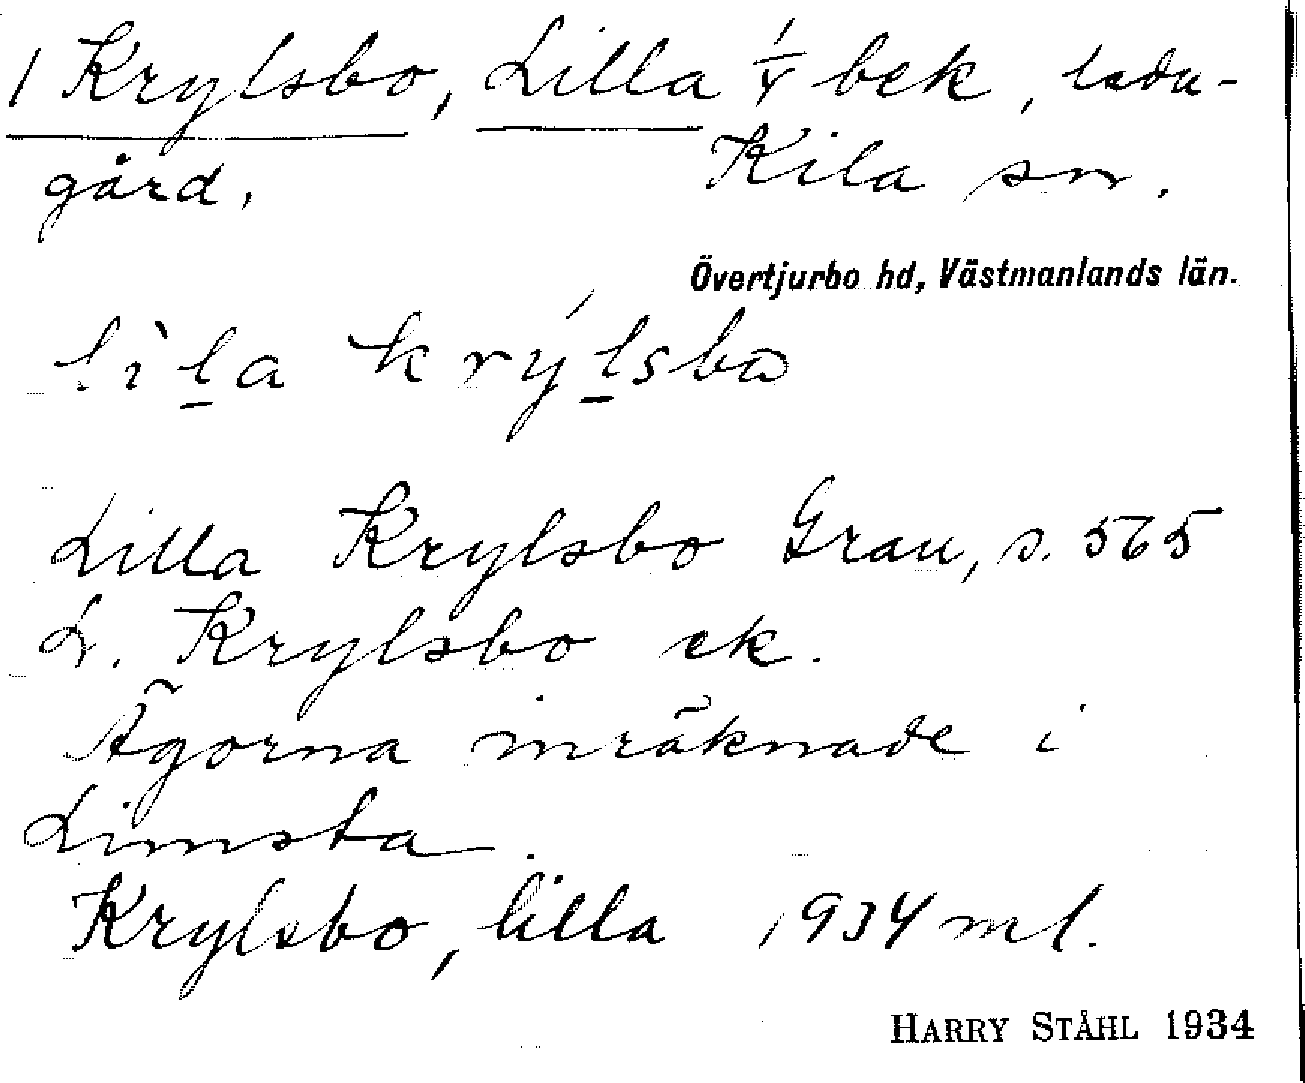 1 Krylsbo, Lilla 1/4 bek, ladu-
gård, Kila sn.
Övertjurbo hd, Västmanlands län.
lìla krýlsbω
Lilla Krylsbo Grau, s. 565
L. Krylsbo ek.
Ägorna inräknade i
Limsta.
Krylsbo, lilla 1934 ml.
HARRY STÅHL 1934